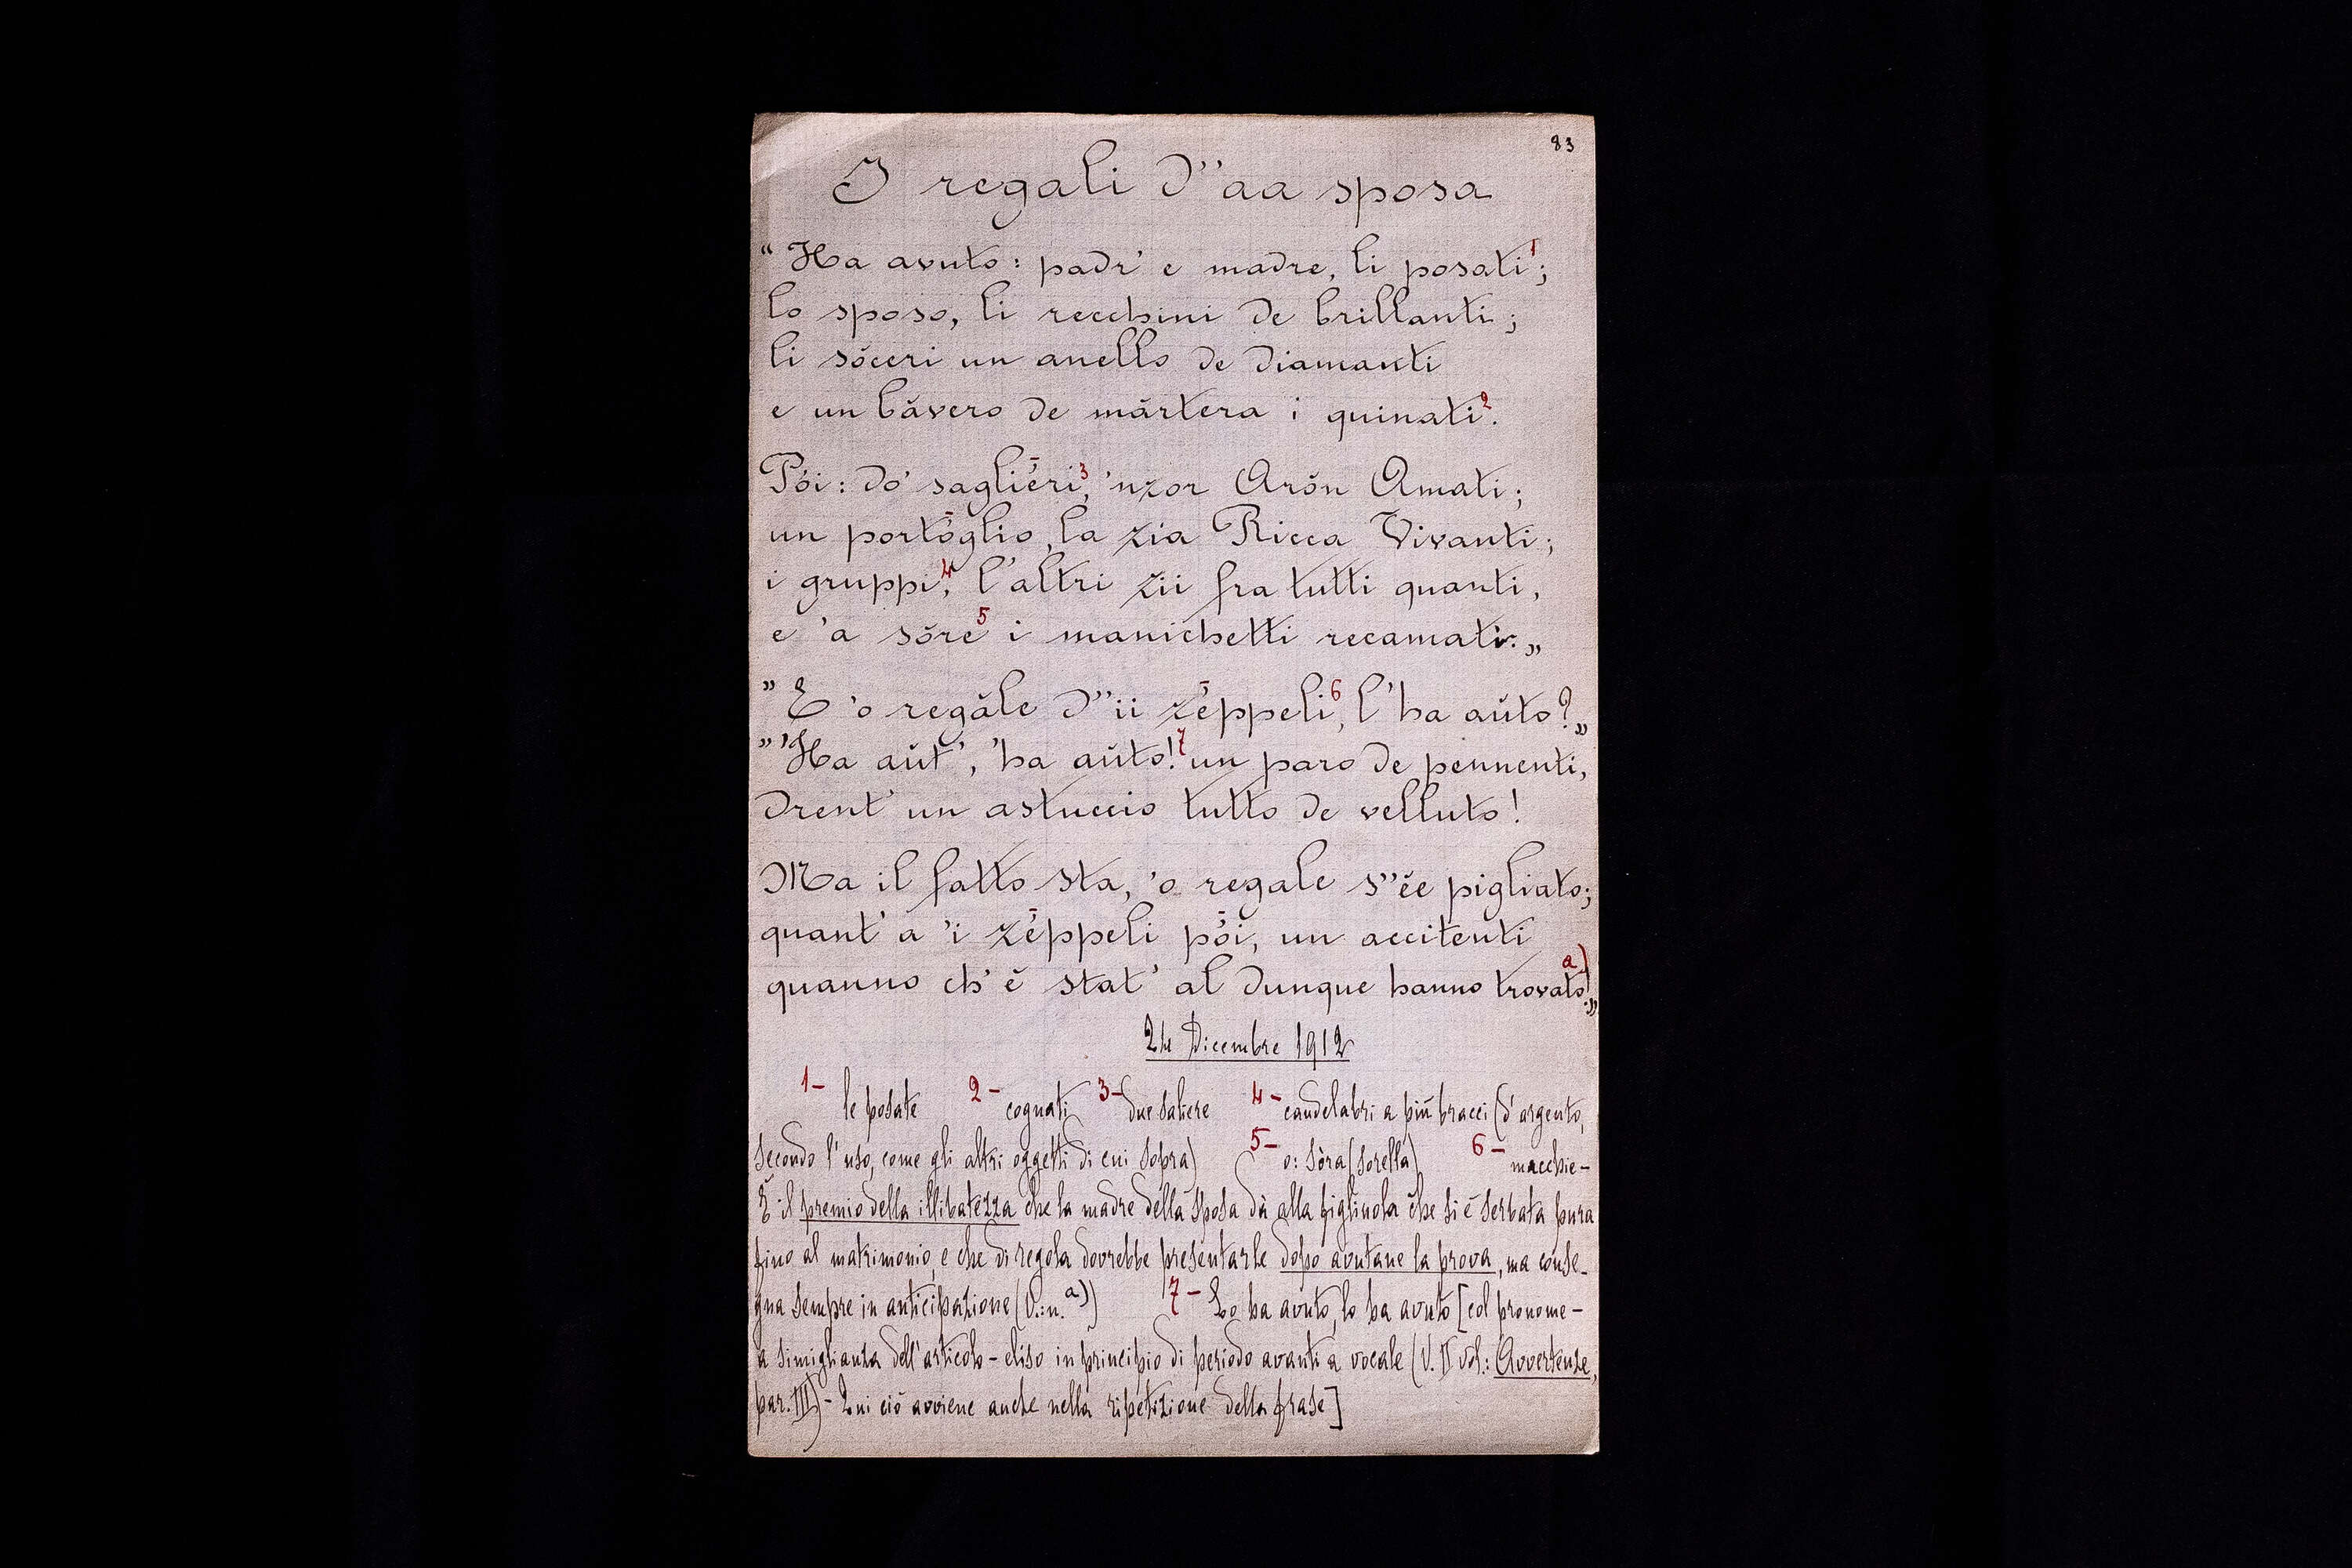 83
I regali d''aa sposa
“Ha avuto: padr' e madre, li posati¹;
lo sposo, li recchini de brillanti;
li sŏceri un anello de diamanti
e un băvero de mărtera i quinati².
Pói: do' sagliéri³, 'nzor Arŏn Amati;
un portóglio, la zia Ricca Vivanti;
i gruppi⁴, l'altri zii fra tutti quanti,
e 'a sŏre⁵ i manichetti recamati.„
”E 'o regăle d''ii zéppeli⁶, l'ha aŭto?„
”'Ha aŭt', 'ha aŭto!⁷ un paro de pennenti,
drent' un astuccio tutto de velluto!
Ma il fatto sta, 'o regale s''ĕe pigliato;
quant' a 'i zéppeli pói, un accitenti
quanno ch' ĕ stat' al dunque hanno trovato!ᵃ⁾„
24 Dicembre 1912
1- le posate 2- cognati 3- due saliere 4- candelabri a più bracci (d'argento,
secondo l'uso, come gli altri oggetti di cui sopra) 5- o: sòra (sorella) 6- macchie-
È il premio della illibatezza che la madre della sposa dà alla figliuola che si è serbata pura
fino al matrimonio, e che di regola dovrebbe presentarle dopo avutane la prova, ma conse-
gna sempre in anticipazione (V.: n. ᵃ⁾) 7- Lo ha avuto, lo ha avuto [col pronome-
a simiglianza dell'articolo - eliso in principio di periodo avanti a vocale (V. II vol.: Avvertenze,
par. III) - Qui ciò avviene anche nella ripetizione della frase]